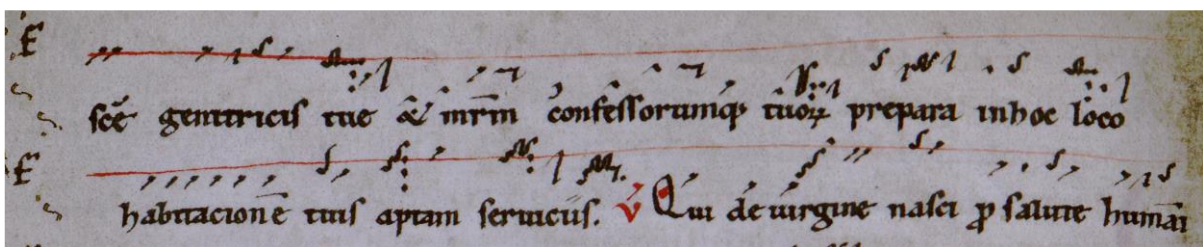 F
sc̄e genitricis tue & mr̄m confessorumq̢ tuoꝝ prepara in hoc loco
F
habitacionē tuis aptam seruiciis. V Qui de uirgine nasci ꝓ salute humani